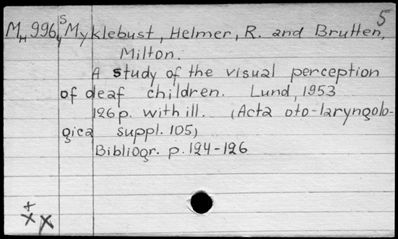 5
M H 996, S Myklebust, Helmer, R. and Brutten,
Milton.
A study of the visual perception
of deaf children. Lund, 1953
126 p. with ill. (Acta oto-laryngolo-
gica suppl. 105)
Bibliogr. p. 124-126